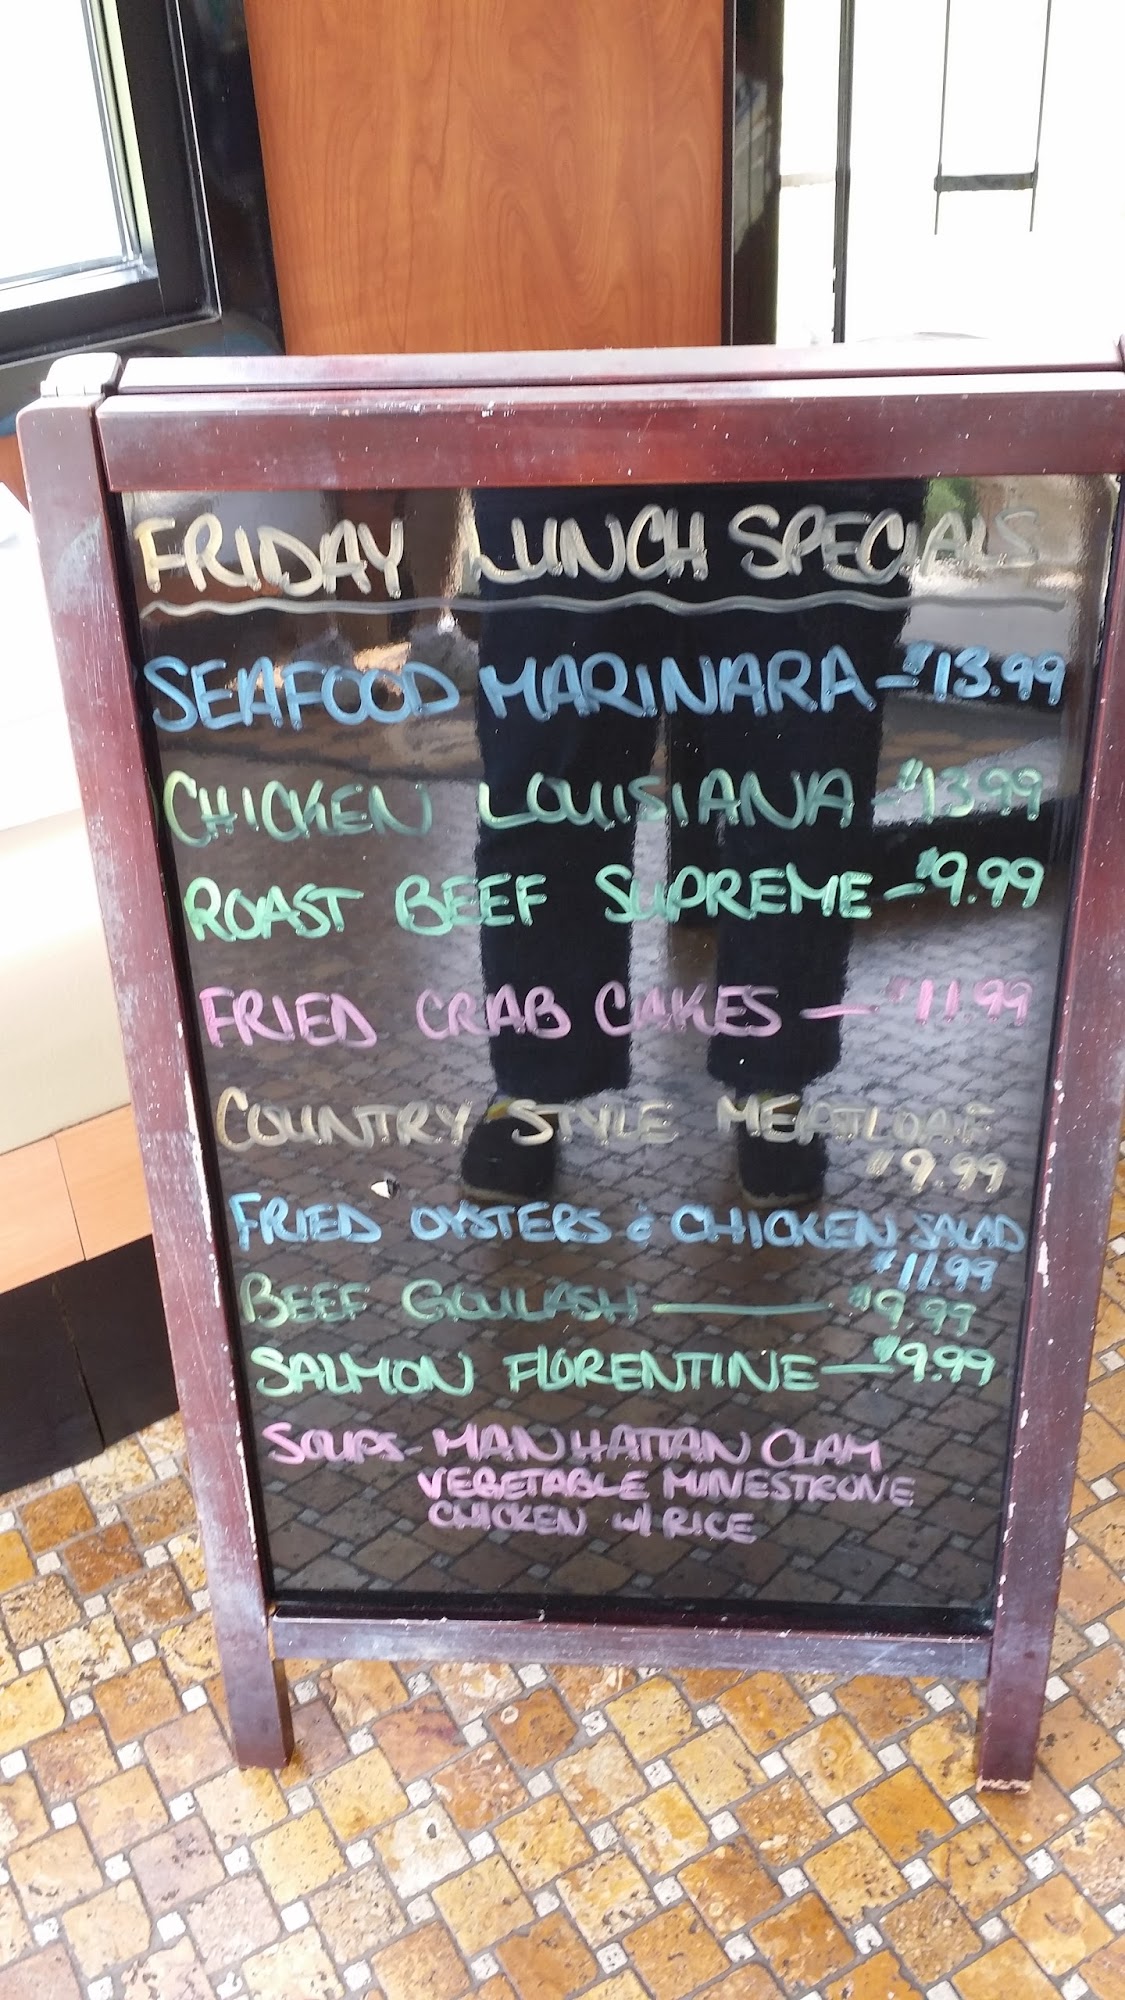 FRIDAY LUNCH SPECIALS
SEAFOOD MARINARA - $13.99
CHICKEN LOUISIANA - $13.99
ROAST BEEF SUPREME - $9.99
FRIED CRAB CAKES — $11.99
COUNTRY STYLE MEATLOAF
$9.99
FRIED OYSTERS & CHICKEN SALAD
$11.99
BEEF GOULASH — $9.99
SALMON FLORENTINE - $9.99
SOUPS - MANHATTAN CLAM
VEGETABLE MINESTRONE
CHICKEN W/ RICE